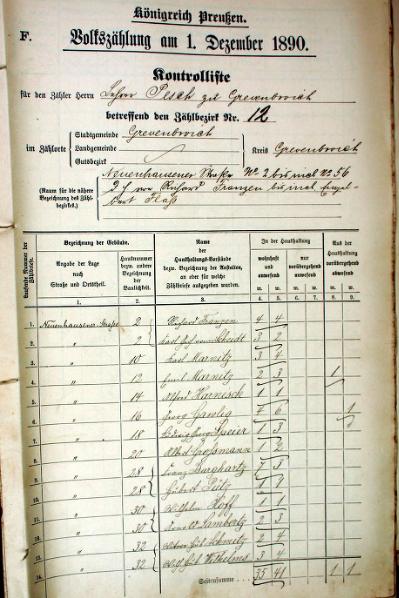 Königreich Preußen.
F. Volkszählung am 1. Dezember 1890.
Kontrolliste
für den Zähler Herrn Lehrer Pesch zu Grevenbroich
betreffend den Zählbezirk Nr. 12
im Zählorte
Stadtgemeinde Grevenbroich
Landgemeinde
Gutsbezirk
Kreis Grevenbroich
(Raum für die nähere Bezeichnung des Zählbezirks.)
Neuenhausener Straße No 2 bis incl No 56
Franzen bis incl
Laufende Nummer der Zählbriefe.
Bezeichnung der Gebäude.
Angabe der Lage nach Straße und Ortsteil.
Hausnummer bezw. andere Bezeichnung der Baulichkeit.
Name der Haushaltungs-Vorstände bezw. Bezeichnung der Anstalten, an oder für welche Zählbriefe ausgegeben wurden.
In der Haushaltung
wohnhaft und anwesend
nur vorübergehend anwesend
Aus der Haushaltung vorübergehend abwesend
m. w. m. w. m. w.
1. 2. 3. 4. 5. 6. 7. 8. 9.
1. Neuenhausener Straße 2 Richard Franzen 4 4
2. " 2 Scheidt 3 2
3. " 10 Karl Marnitz 3 4
4. " 12 Emil Marnitz 2 3 1
5. " 14 Alfred Harnisch 1 1
6. " 16 Georg 7 6 1
7. " 18 Speier 1 3
8. " 20 Großmann 1 2
9. " 28 Franz Burghartz 7 3
10. " 28 Hubert
11. " 30 Wilhelm Hoff 1 1
12. " 30 Lambertz 2 3
13. " 32 Schmitz 2 4
14. " 32 Wilhelms 3 4
Seitensumme 35 41 1 1